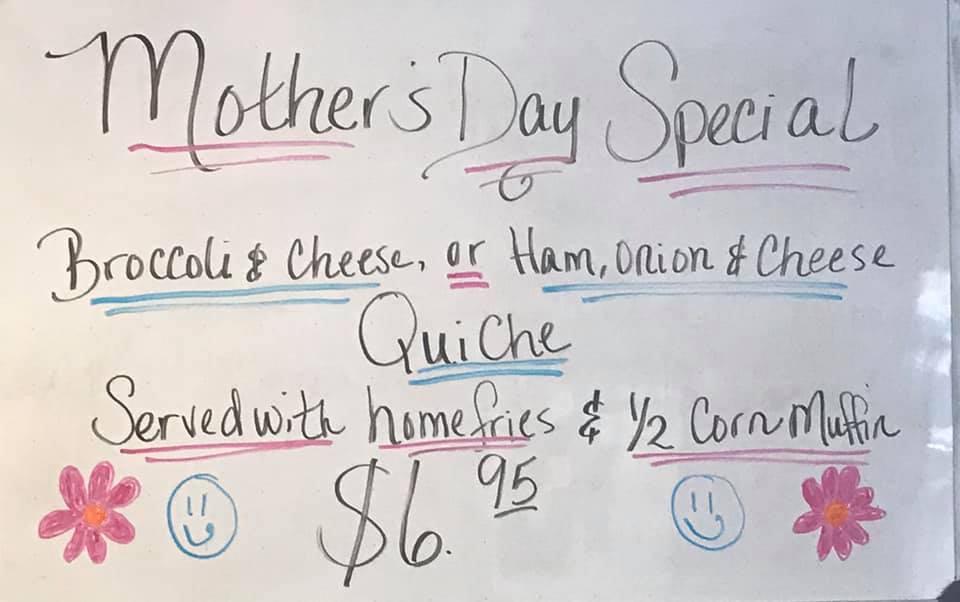 Mother's Day Special
Broccoli & Cheese, or Ham, Onion & Cheese
Quiche
Served with homefries & 1/2 Corn Muffin
$6.95